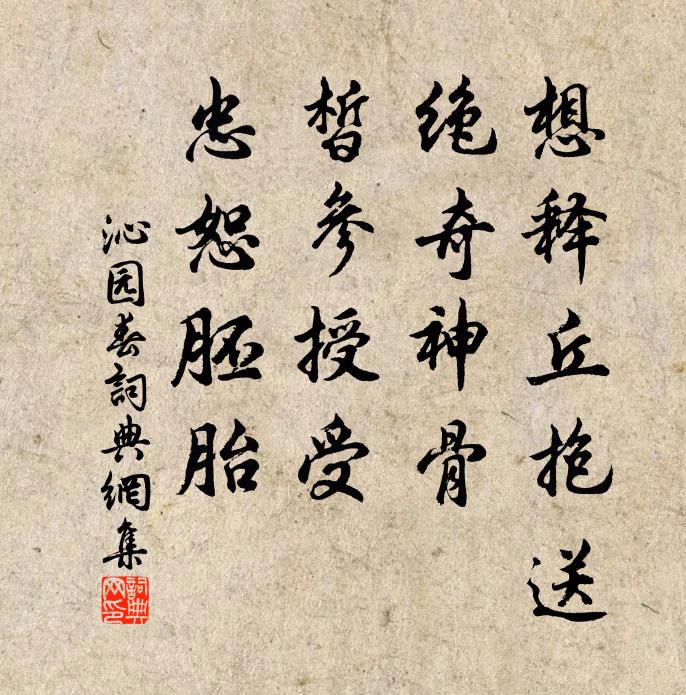 想释丘抱送
绝奇神骨
皙参授受
忠恕胚胎
沁园春詞典網集
詞典网印